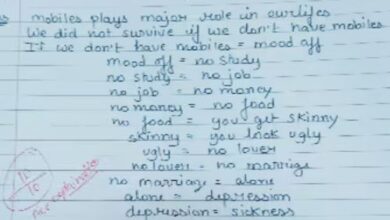 mobiles plays major role in ourlifes
We did not survive if we don't have mobiles
If we don't have mobiles = mood off
mood off = no study
no study = no job
no job = no money
no money = no food
no food = you get skinny
skinny = you look ugly
ugly = no lover
no lover = no marriage
no marriage = alone
alone = depression
depression = sickness
10